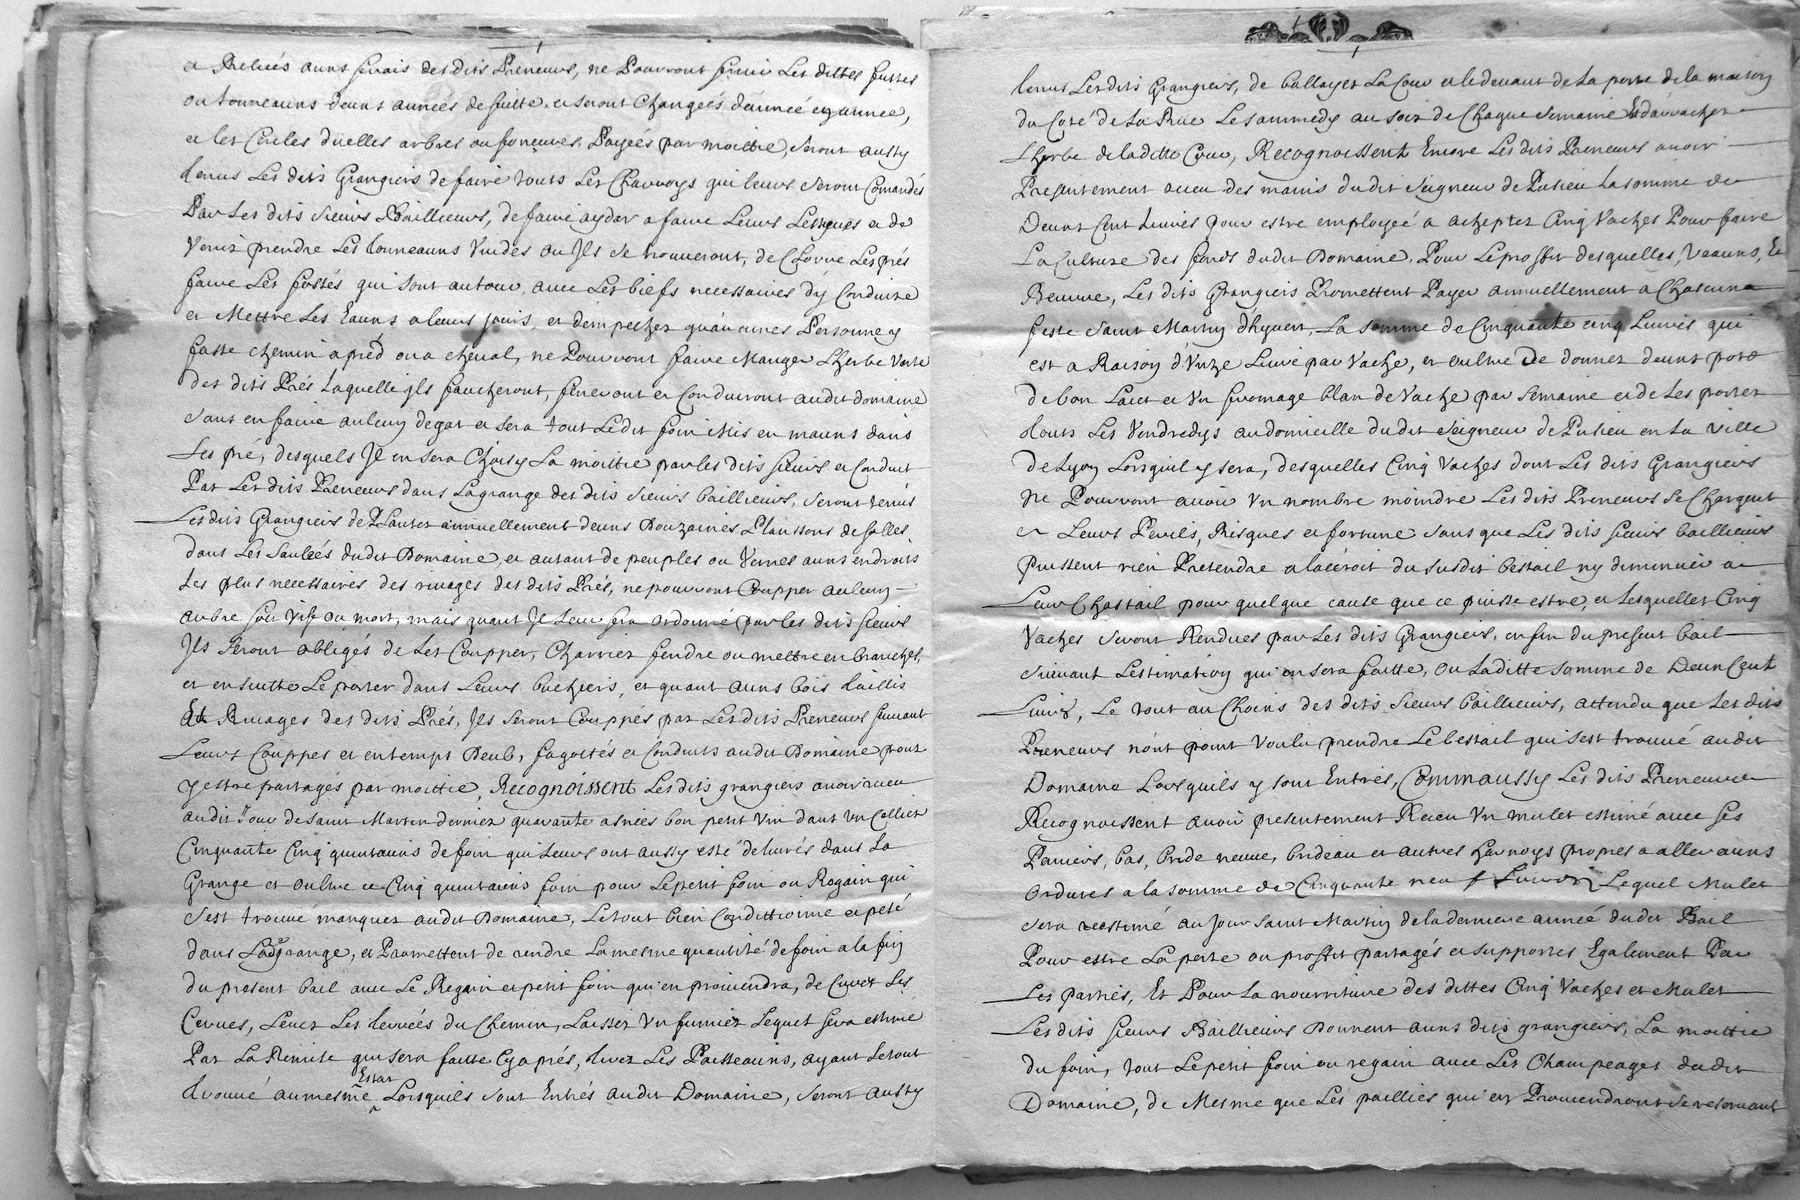 et Reliées aux frais des dits Preneurs, ne Pourront servir Les dittes futtes
ou tonneaux deux années de suitte, et seront Changées d'année en année,
et les Cercles düelles arbres ou Payées par moittié, seront aussy
tenus Les dits Grangiers de faire touts Les Charroys qui leurs seront Comandés
Par Les dits sieurs Baillieurs, de faire ayder a faire Leurs Lessives et de
Venir prendre Les tonneaux Vuides ou Ils se trouveront, de Clorre Les prés
faire Les fossés qui sont autour, avec Les biefs necessaires d'y Conduire
et Mettre Les Eaux a leurs jours, et d'empecher qu'aucunes Personne n'y
fasse chemin a pied ou a cheval, ne Pourront faire Manger L'herbe Verte
des dits Prés Laquelle ils faucheront, feneront et Conduiront audit domaine
sans en faire aulcun degat et sera tout Ledit foin Mis en maux dans
Les pré, desquels Il en sera Choisy La moittié par les dits sieurs et Conduit
Par Les dits Preneurs dans La grange des dits sieurs baillieurs, seront tenus
Les dits Grangiers de Planter annuellement deux Douzaines Plantons de salles
dans Les saulées dudit Domaine, et autant de peuples ou Vernes aux endroits
Les plus necessaires des rivages des dits Prés, ne pourront Coupper aulcun
arbre soit Vif ou mort, mais quant Il Leur sera ordonné par les dits sieurs
Ils seront obligés de Les Coupper, Charrier fendre ou mettre en branches,
et en suitte Le porter dans Leurs buchiers, et quant aux bois taillis
Et Rivages des dits Prés, Ils seront Couppés par Les dits Preneurs suivant
Leurs Couppes et en temps Deub, fagottés et Conduits audit Domaine pour
y estre partagés par moittié, Recognoissent Les dits grangiers avoir receu
audit Jour de saint Martin dernier quarante asnées bon petit Vin dans Un Cellier
Cinquante Cinq quintaux de foin qui Leurs ont aussy esté delivrés dans La
Grange et oultre ce Cinq quintaux foin pour Le petit foin ou Regain qui
s'est trouvé manquer audit Domaine, Le tout bien Conditionné et pesé
dans Lad. grange, et Promettent de rendre La mesme quantité de foin a la fin
du present bail avec Le Regain et petit foin qui en proviendra, de Curer Les
Cerves, Lever Les levées du Chemin, Laisser Un fumier Lequel sera estimé
Par La Remise qui sera faitte Cy aprés, livrer Les Paisseaux, ayant Le tout
trouvé au mesme Estat Lorsquils sont Entrés audit Domaine, seront aussy
tenus Les dits Grangiers, de ballayer La Cour et le devant de la porte de la maison
du Coté de La Rüe Le sammedy au soir de Chaque semaine Et d'arracher
L'herbe de laditte Cour, Recognoissent Encore Les dits Preneurs avoir
Presentement receu des mains dudit seigneur de Pusieu La somme de
Deux Cent Livres pour estre employée a achepter Cinq Vaches Pour faire
La Culture des fonds dudit Domaine, Pour Le proffit desquelles, Veaux, Et
Beurre, Les dits Grangiers Promettent Payer annuellement a Chacune
feste saint Martin d'hyver, La somme de Cinquante cinq Livres qui
est a Raison d'Unze Livre par Vache, et oultre De donner deux pots
de bon Laict et Un fromage blan de Vache par semaine et de Les porter
touts Les Vendredys au domicille dudit seigneur de Pusieu en La Ville
de Lyon Lorsquil y sera, desquelles Cinq Vaches dont Les dits Grangiers
Ne Pourront avoir Un nombre moindre Les dits Preneurs se Chargent
a Leurs Perils, Risques et fortune sans que Les dits sieurs baillieurs
Puissent rien Pretendre a lacéroit du susdit bestail ny diminuer a
Leur Chastail pour quelque cause que ce puisse estre, et Lesquelles Cinq
Vaches seront Rendues par Les dits Grangiers, en fin du present bail
suivant L'estimation qui en sera faitte, ou Laditte somme de Deux Cent
Livres, Le tout au Choins des dits sieurs baillieurs, attendu que Les dits
Preneurs n'ont point Voulu prendre Le bestail qui s'est trouvé audit
Domaine Lorsquils y sont Entrés, Comm aussy Les dits Preneurs
Recognoissent avoir presentement Receu Un mulet estimé avec ses
Paniers, bas, bride neuve, brideau et autres harnoys propres a aller aux
ordures a la somme de Cinquante neuf Livres Lequel Mulet
sera reestimé au Jour saint Martin de la derniere année dudit Bail
Pour estre La perte ou proffit partagés et supportés Egalement Par
Les parties, Et Pour La nourriture des dittes Cinq Vaches et Mulet
Les dits sieurs Baillieurs Donnent aux dits grangiers, La moittié
du foin, tout Le petit foin ou regain avec Les Champeages dudit
Domaine, de Mesme que Les pailles qui en Proviendront se reservant